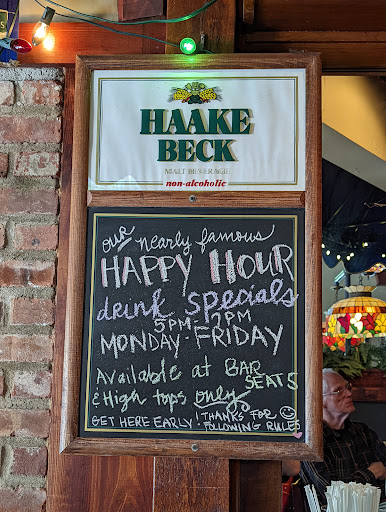 HAAKE
BECK
MALT BEVERAGE
non-alcoholic
our nearly famous
HAPPY HOUR
drink specials
5PM-7PM
MONDAY-FRIDAY
Available at BAR
SEATS
& High tops only
GET HERE EARLY · THANKS FOR
FOLLOWING RULES